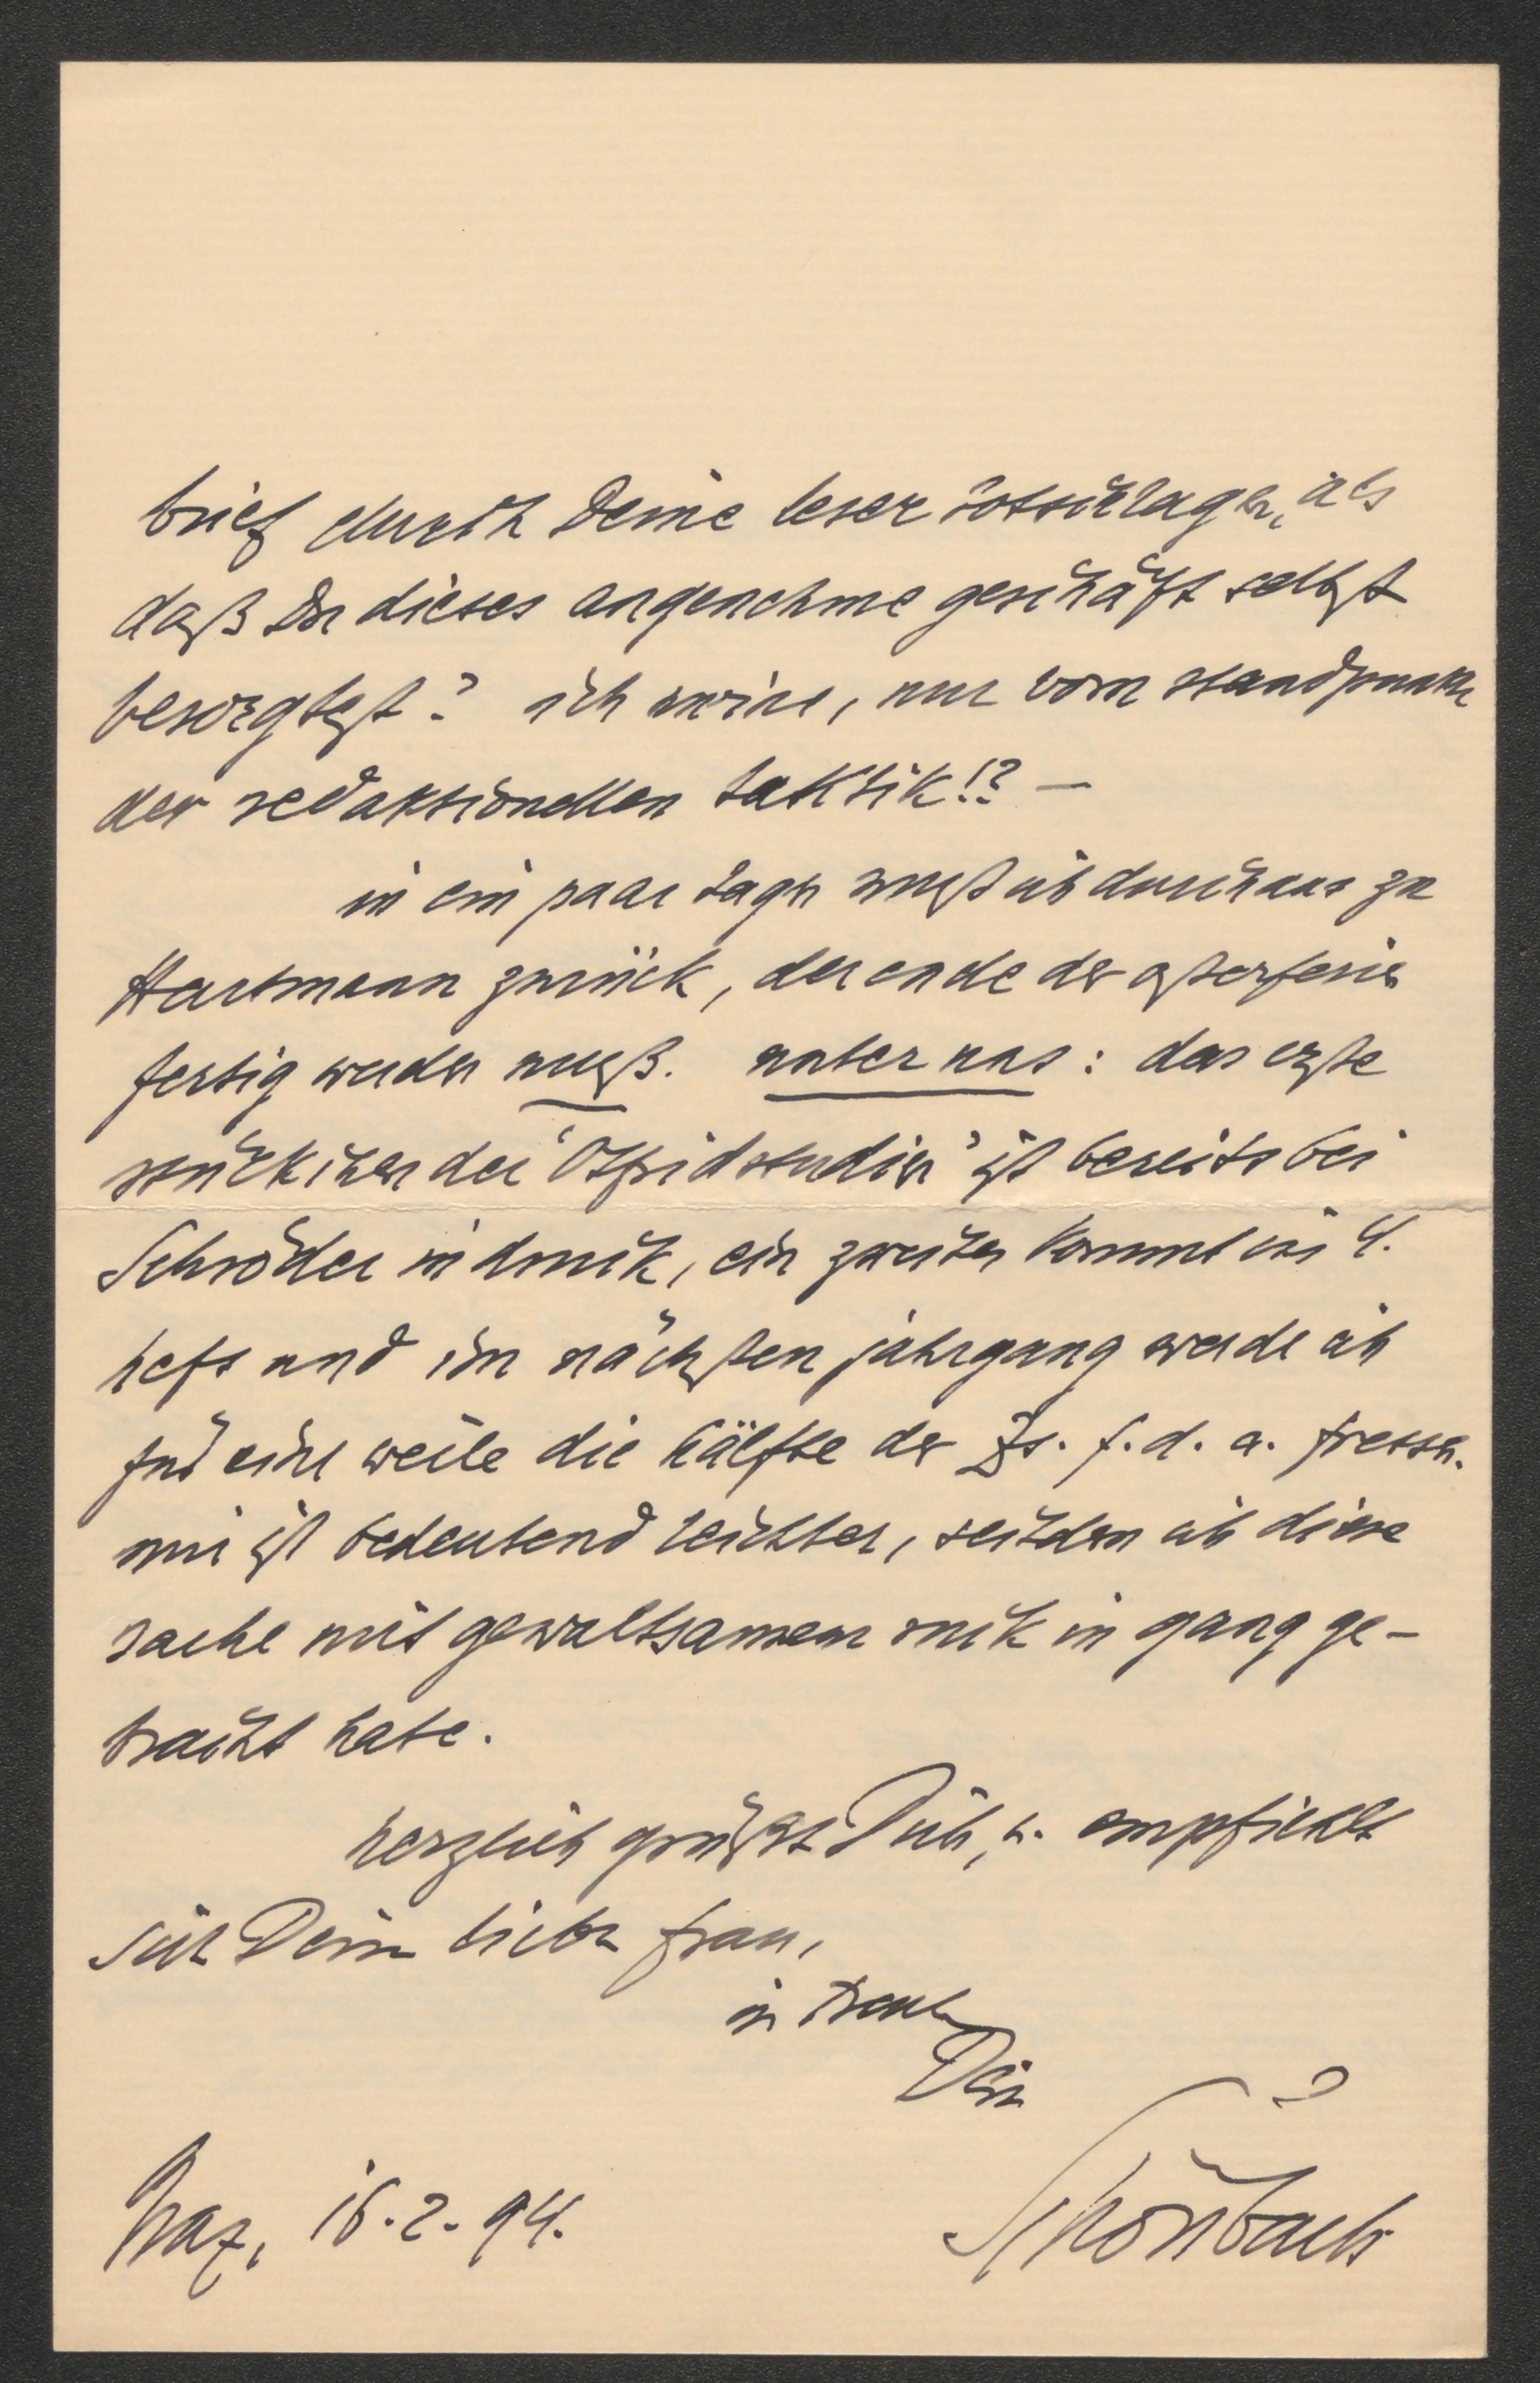 brief durch Deine leser totschlagen, als
daß Du dieses angenehme geschäft selbst
besorgtest? ich meine, nur vom standpunkte
der redaktionellen taktik!? —
in ein paar tagen muß ich durchaus zu
Hartmann zurück, der ende der osterferien
fertig werden muß. unter uns: das erste
stückchen der 'Otfridstudien' ist bereits bei
Schröder in druck, ein zweites kommt ins 4.
heft und im nächsten jahrgang werde ich
für eine weile die hälfte der Zs. f. d. a. fressen.
mir ist bedeutend leichter, seitdem ich diese
sache mit gewaltsamem ruck in gang ge-
bracht habe.
herzlich grüßt Dich, u. empfiehlt
sich Deiner lieben frau,
in treue
Dein
Schönbach
Graz, 16. 2. 94.